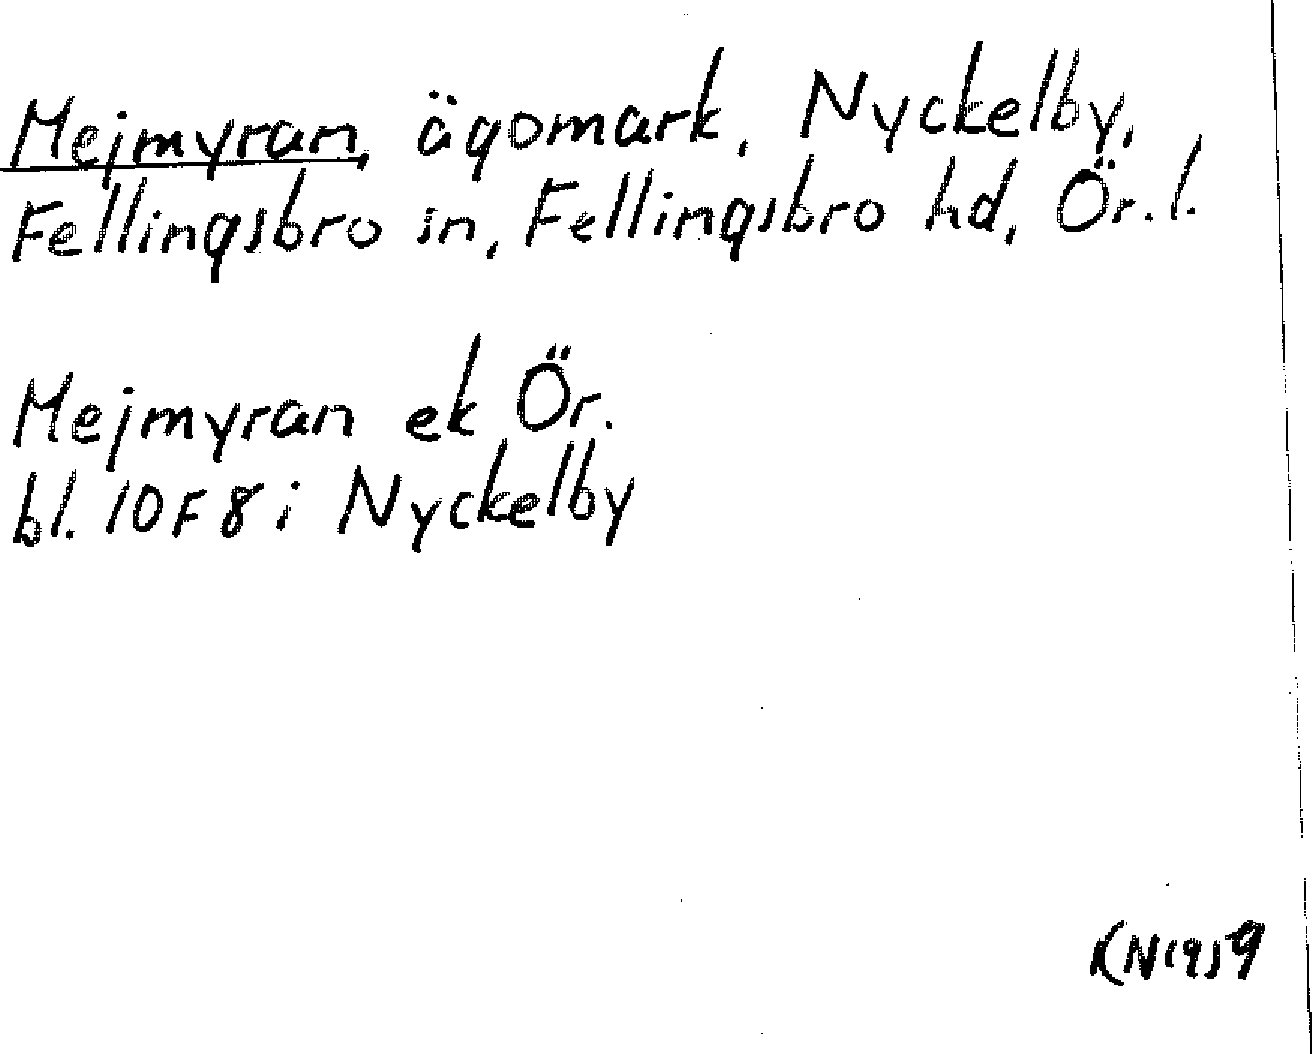 Mejmyran, ägomark, Nyckelby,
Fellingsbro sn, Fellingsbro hd, Ör. l.
Mejmyran ek Ör.
bl. 10F8i Nyckelby
KN1959